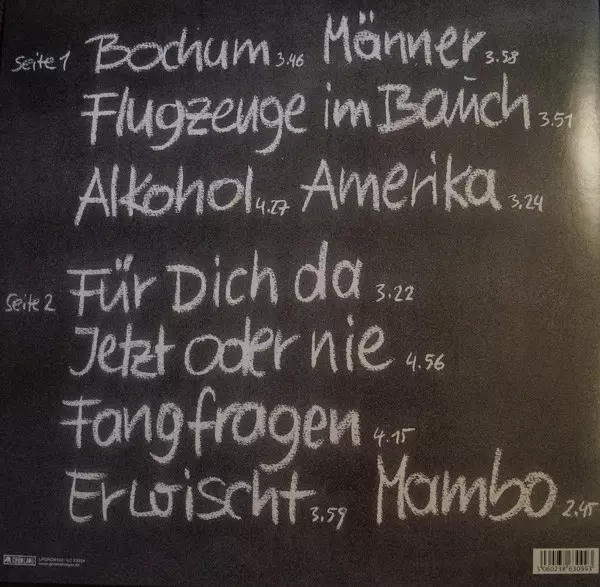 Seite 1 Bochum 3.46 Männer 3.58
Flugzeuge im Bauch 3.51
Alkohol 4.27 Amerika 3.24
Seite 2 Für Dich da 3.22
Jetzt oder nie 4.56
Fangfragen 4.15
Erwischt 3.59 Mambo 2.45
GRÖNLAND
5060238630993